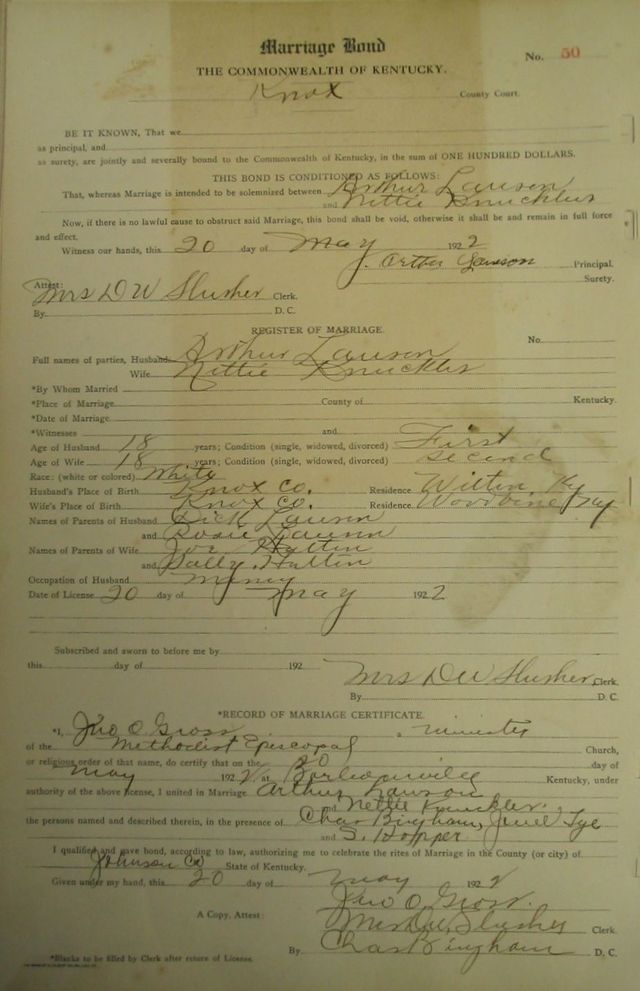 Marriage Bond
No. 50
THE COMMONWEALTH OF KENTUCKY.
Knox County Court.
BE IT KNOWN, That we
as principal, and
as surety, are jointly and severally bound to the Commonwealth of Kentucky, in the sum of ONE HUNDRED DOLLARS.
THIS BOND IS CONDITIONED AS FOLLOWS:
That, whereas Marriage is intended to be solemnized between Arthur Lawson
and Nettie Knuckles
Now, if there is no lawful cause to obstruct said Marriage, this bond shall be void, otherwise it shall be and remain in full force
and effect.
Witness our hands, this 20 day of May 1922
J. Arthur Lawson Principal.
Surety.
Attest:
Mrs D W Slusher Clerk.
By D. C.
REGISTER OF MARRIAGE.
No.
Full names of parties, Husband Arthur Lawson
Wife Nettie Knuckles
*By Whom Married
*Place of Marriage County of Kentucky.
*Date of Marriage
*Witnesses and
Age of Husband 18 years; Condition (single, widowed, divorced) First
Age of Wife 18 years; Condition (single, widowed, divorced) second
Race: (white or colored) White
Husband's Place of Birth Knox Co. Residence Wilton Ky
Wife's Place of Birth Knox Co. Residence Woodbine Ky
Names of Parents of Husband Dick Lawson
and Rosie Lawson
Names of Parents of Wife Joe
and Sally
Occupation of Husband
Date of License 20 day of May 1922
Subscribed and sworn to before me by
this day of 192
Mrs D W Slusher Clerk.
By D. C.
*RECORD OF MARRIAGE CERTIFICATE.
*I, Jno O Gross a minister
of the Methodist Episcopal Church,
or religious order of that name, do certify that on the 20 day of
May 1922 at Barbourville Kentucky, under
authority of the above license, I united in Marriage Arthur Lawson
and Nettie Knuckles
the persons named and described therein, in the presence of Chas Bingham, Jewel Tye
and S. Hopper
I qualified and gave bond, according to law, authorizing me to celebrate the rites of Marriage in the County (or city) of
Johnson Co State of Kentucky.
Given under my hand, this 20 day of May 1922
Jno O Gross.
A Copy, Attest: Mrs D W Slusher Clerk.
By Chas Bingham D. C.
*Blanks to be filled by Clerk after return of License.